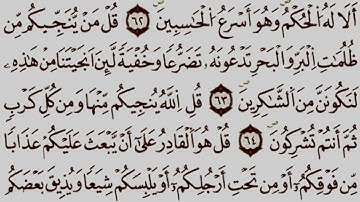 أَلَا لَهُ ٱلْحُكْمُ وَهُوَ أَسْرَعُ ٱلْحَٰسِبِينَ ٦٢ قُلْ مَن يُنَجِّيكُم مِّن
ظُلُمَٰتِ ٱلْبَرِّ وَٱلْبَحْرِ تَدْعُونَهُۥ تَضَرُّعًا وَخُفْيَةً لَّئِنْ أَنجَيْتَنَا مِنْ هَٰذِهِۦ
لَنَكُونَنَّ مِنَ ٱلشَّٰكِرِينَ ٦٣ قُلِ ٱللَّهُ يُنجِيكُم مِّنْهَا وَمِن كُلِّ كَرْبٍ
ثُمَّ أَنتُمْ تُشْرِكُونَ ٦٤ قُلْ هُوَ ٱلْقَادِرُ عَلَىٰٓ أَن يَبْعَثَ عَلَيْكُمْ عَذَابًا
مِّن فَوْقِكُمُۥٓ أَوْ مِن تَحْتِ أَرْجُلِكُمُۥٓ أَوْ يَلْبِسَكُمْ شِيَعًا وَيُذِيقَ بَعْضَكُم